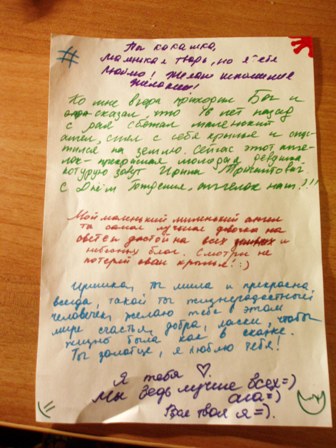 Ты какашка,
маминая тварь, но я тебя
люблю! Желаю исполнения
желаний!
Ко мне вчера приходил Бог и
сказал что 16 лет назад
с рая сбежал маленький
ангел, снял с себя крылья и спу-
тился на землю. Сейчас этот анге-
лок - прекрасная молодая девушка,
которую зовут Ирина
С Днём Рождения, ангелок наш!!!
Мой маленький миленький ангел
ты самая лучшая девочка на
свете и достойна всех земных и
небесных благ. Смотри не
потеряй свои крылья! :)
Иришка, ты мила и прекрасна
всегда, такой ты жизнерадостный
человечек, желаю тебе в этом
мире счастья, добра, ласки, чтобы
жизнь была как в сказке.
Ты золотце, я люблю тебя!
Я тебя ♡.
Мы ведь лучше всех =)
ага =)
Вся твоя я =).